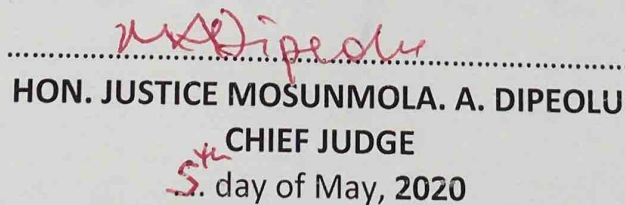 M.A Dipeolu
HON. JUSTICE MOSUNMOLA. A. DIPEOLU
CHIEF JUDGE
5th day of May, 2020